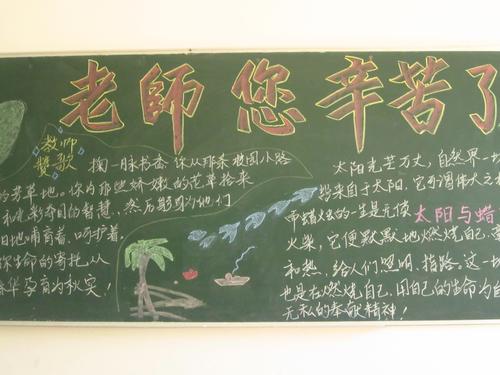 老師您辛苦了
教师
赞歌
掬一脉书香 你从那条校园小路
的芳草地。你为那些娇嫩的花草拾来
和光彩夺目的智慧,然后期望为他们
日地哺育着、呵护着
你生命的寄托,从
春华孕育为秋实!
太阳光芒万丈,自然界一切
将来自于太阳,它可谓伟大之
而蜡烛的一生是充读
太阳与蜡
火柴,它便默默地燃烧自己,
和热,给人们照明、指路。这一切
也是在燃烧自己,用自己的生命为
无私的奉献精神!